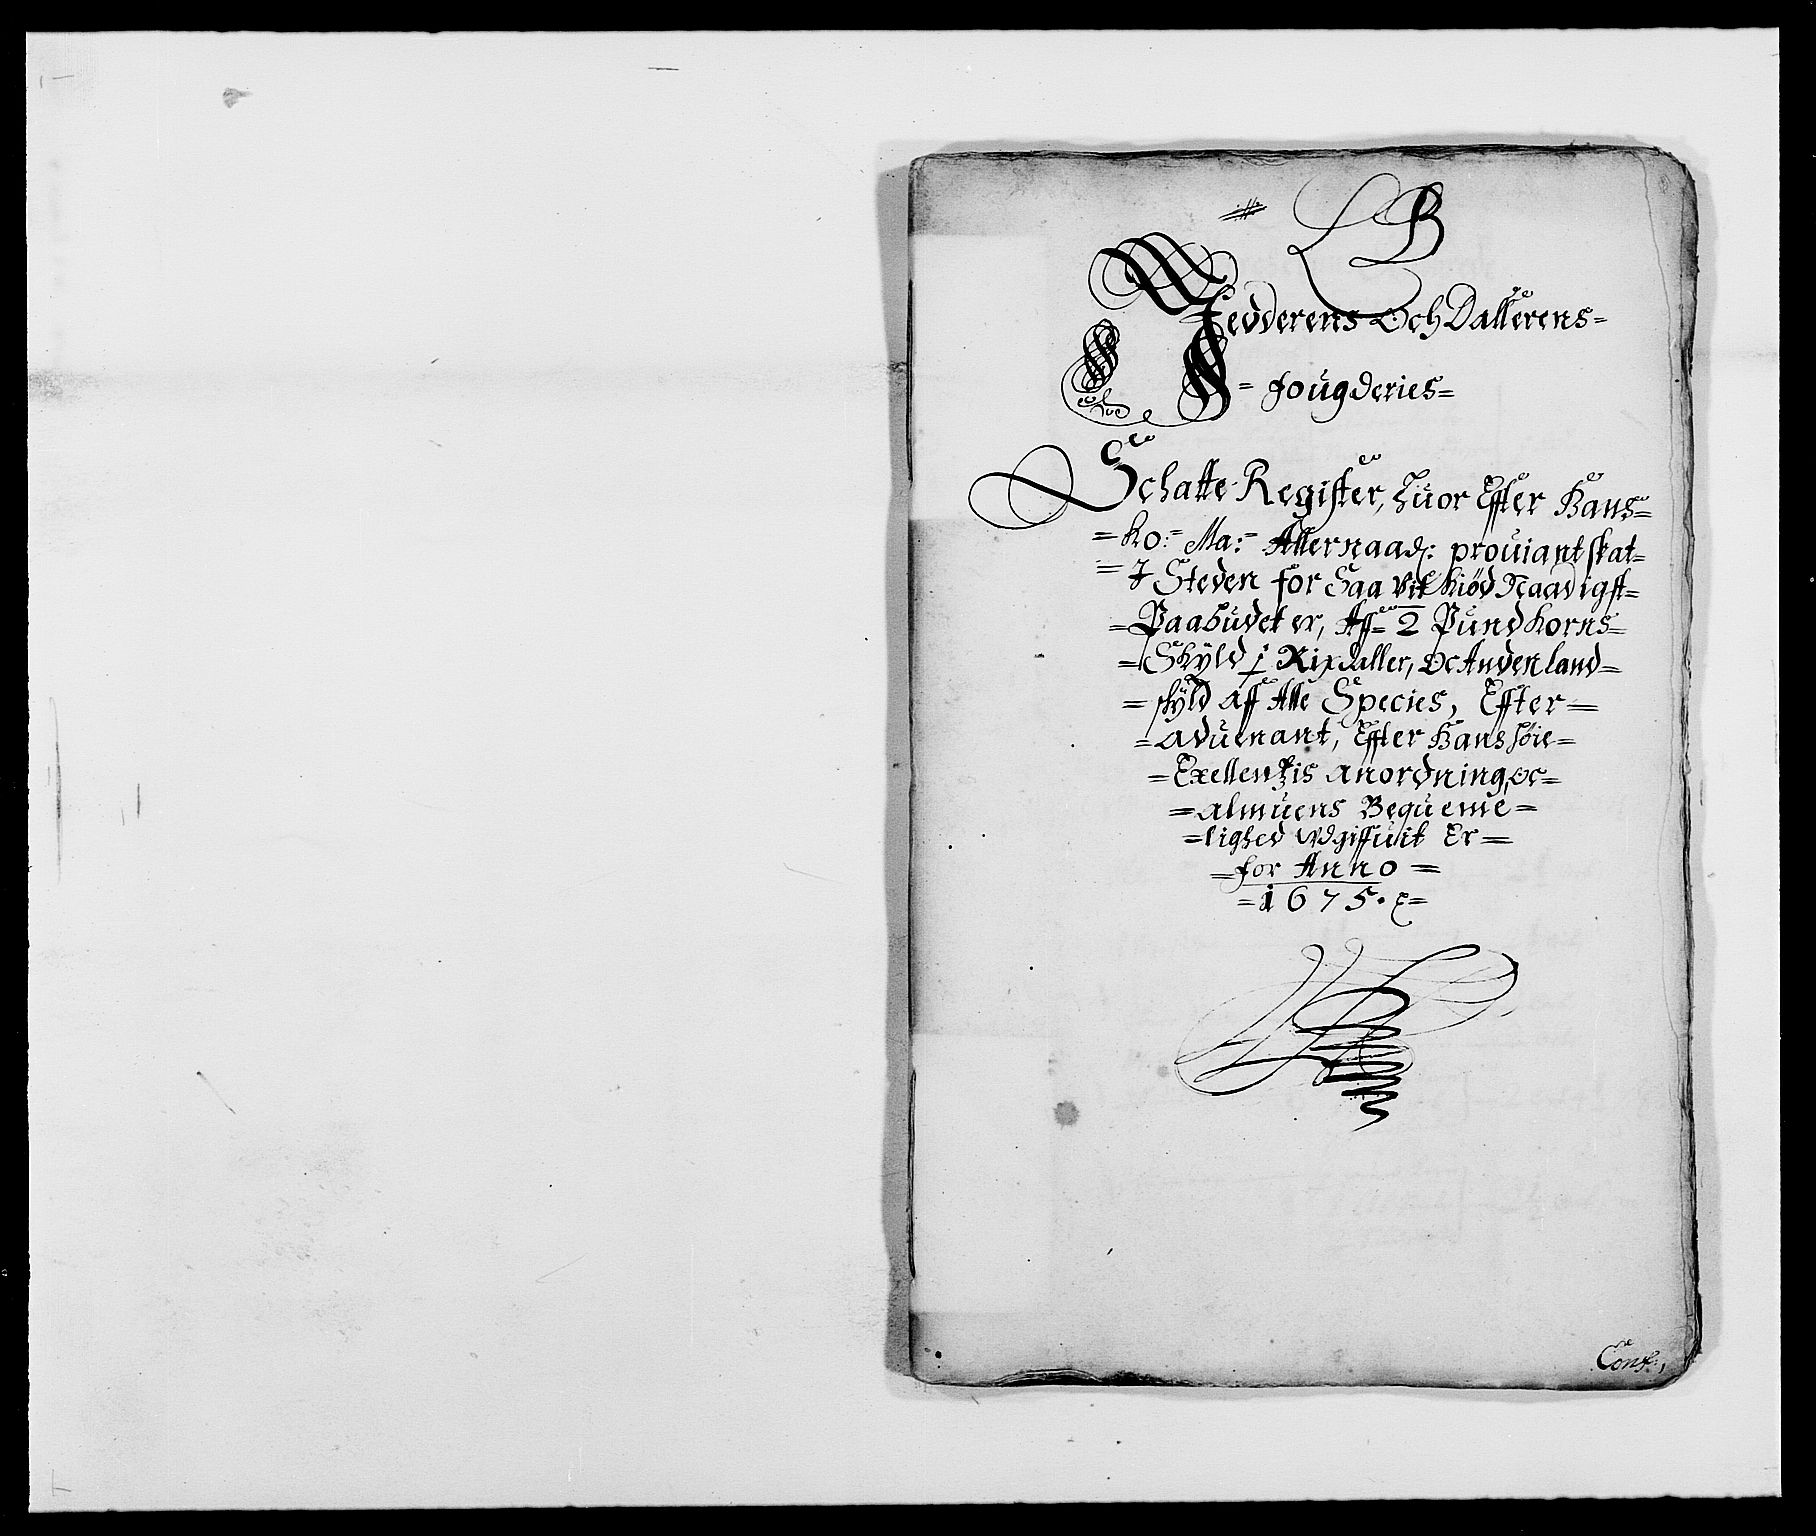 B
Jedderens Och Dallerens=
= fougderies=
Schatte Register, huor Effter Hans=
=Ko:= Ma:= Allernaad: prouiantskat=
=J Steden for Saa vit Kiød Naadigst=
=Paabudet er, Aff= 2 Pund Korns=
=Skyld j Rixdaller, Oc Anden land=
=skÿld aff Alle Species, Effter=
=aduenant, Effter Hans høie=
=Exellentzis anordning, oc=
=almuens Bequeme=
=lighed Udgiffuit Er=
=for Anno=
=1675.=